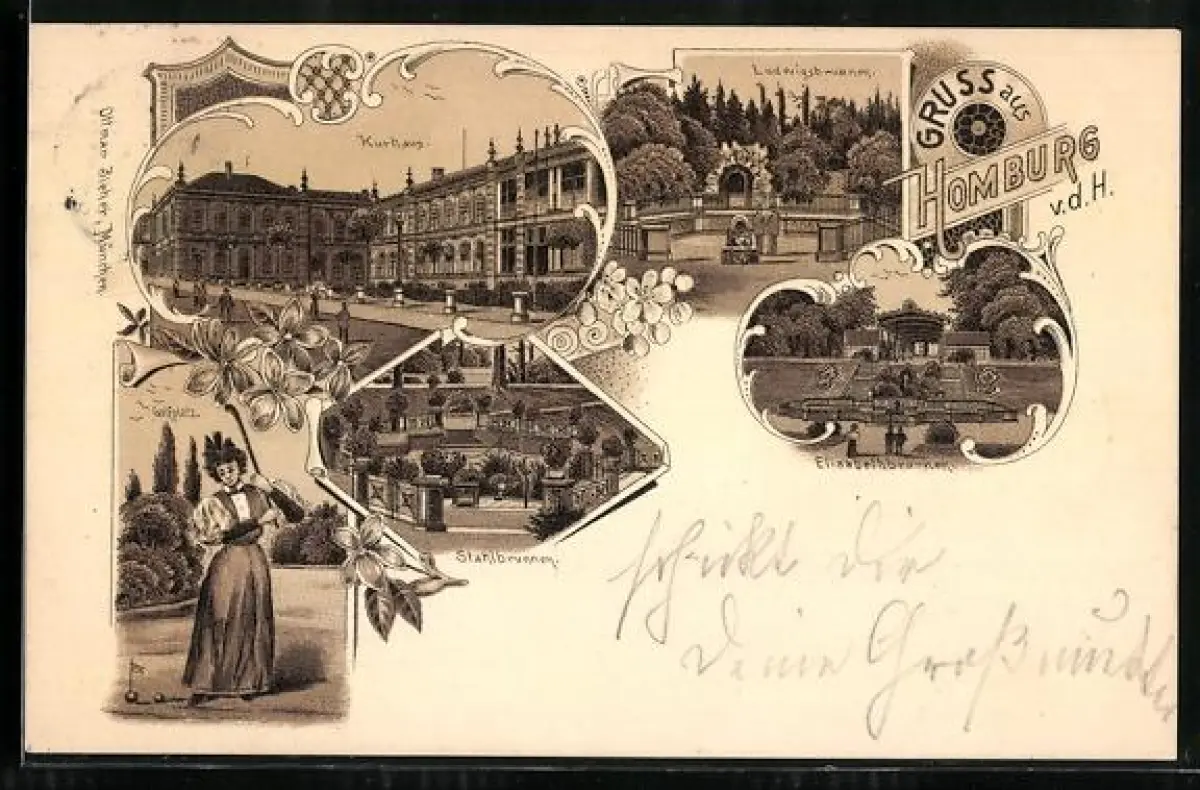 Ottmar Zieher, München.
Kurhaus.
Ludwigsbrunnen.
GRUSS aus
HOMBURG
v.d.H.
Golfplatz.
Elisabethbrunnen.
Stahlbrunnen.
schickt dir
Deine Großmutter